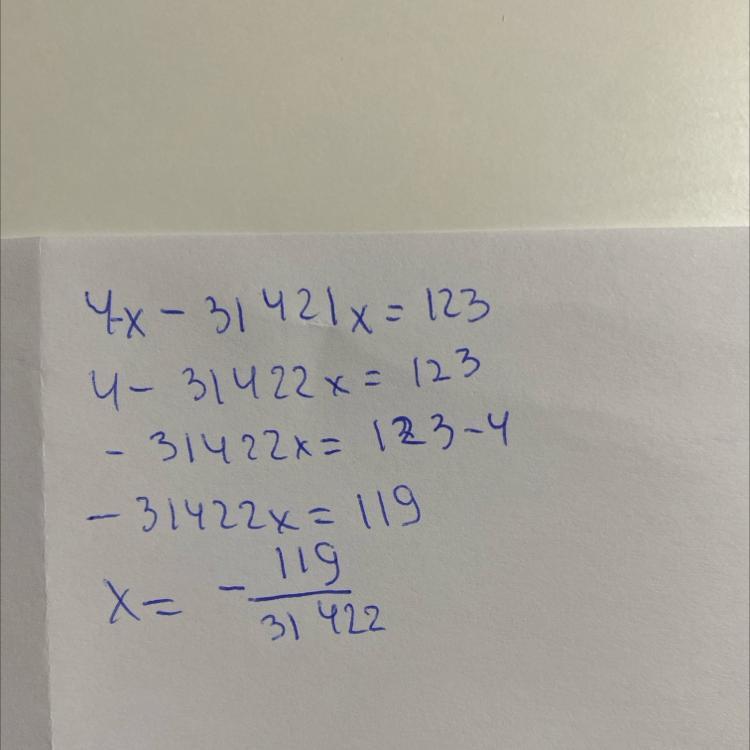 4x - 31421x = 123
4 - 31422x = 123
- 31422x = 123-4
- 31422x = 119
x = - 119/31422